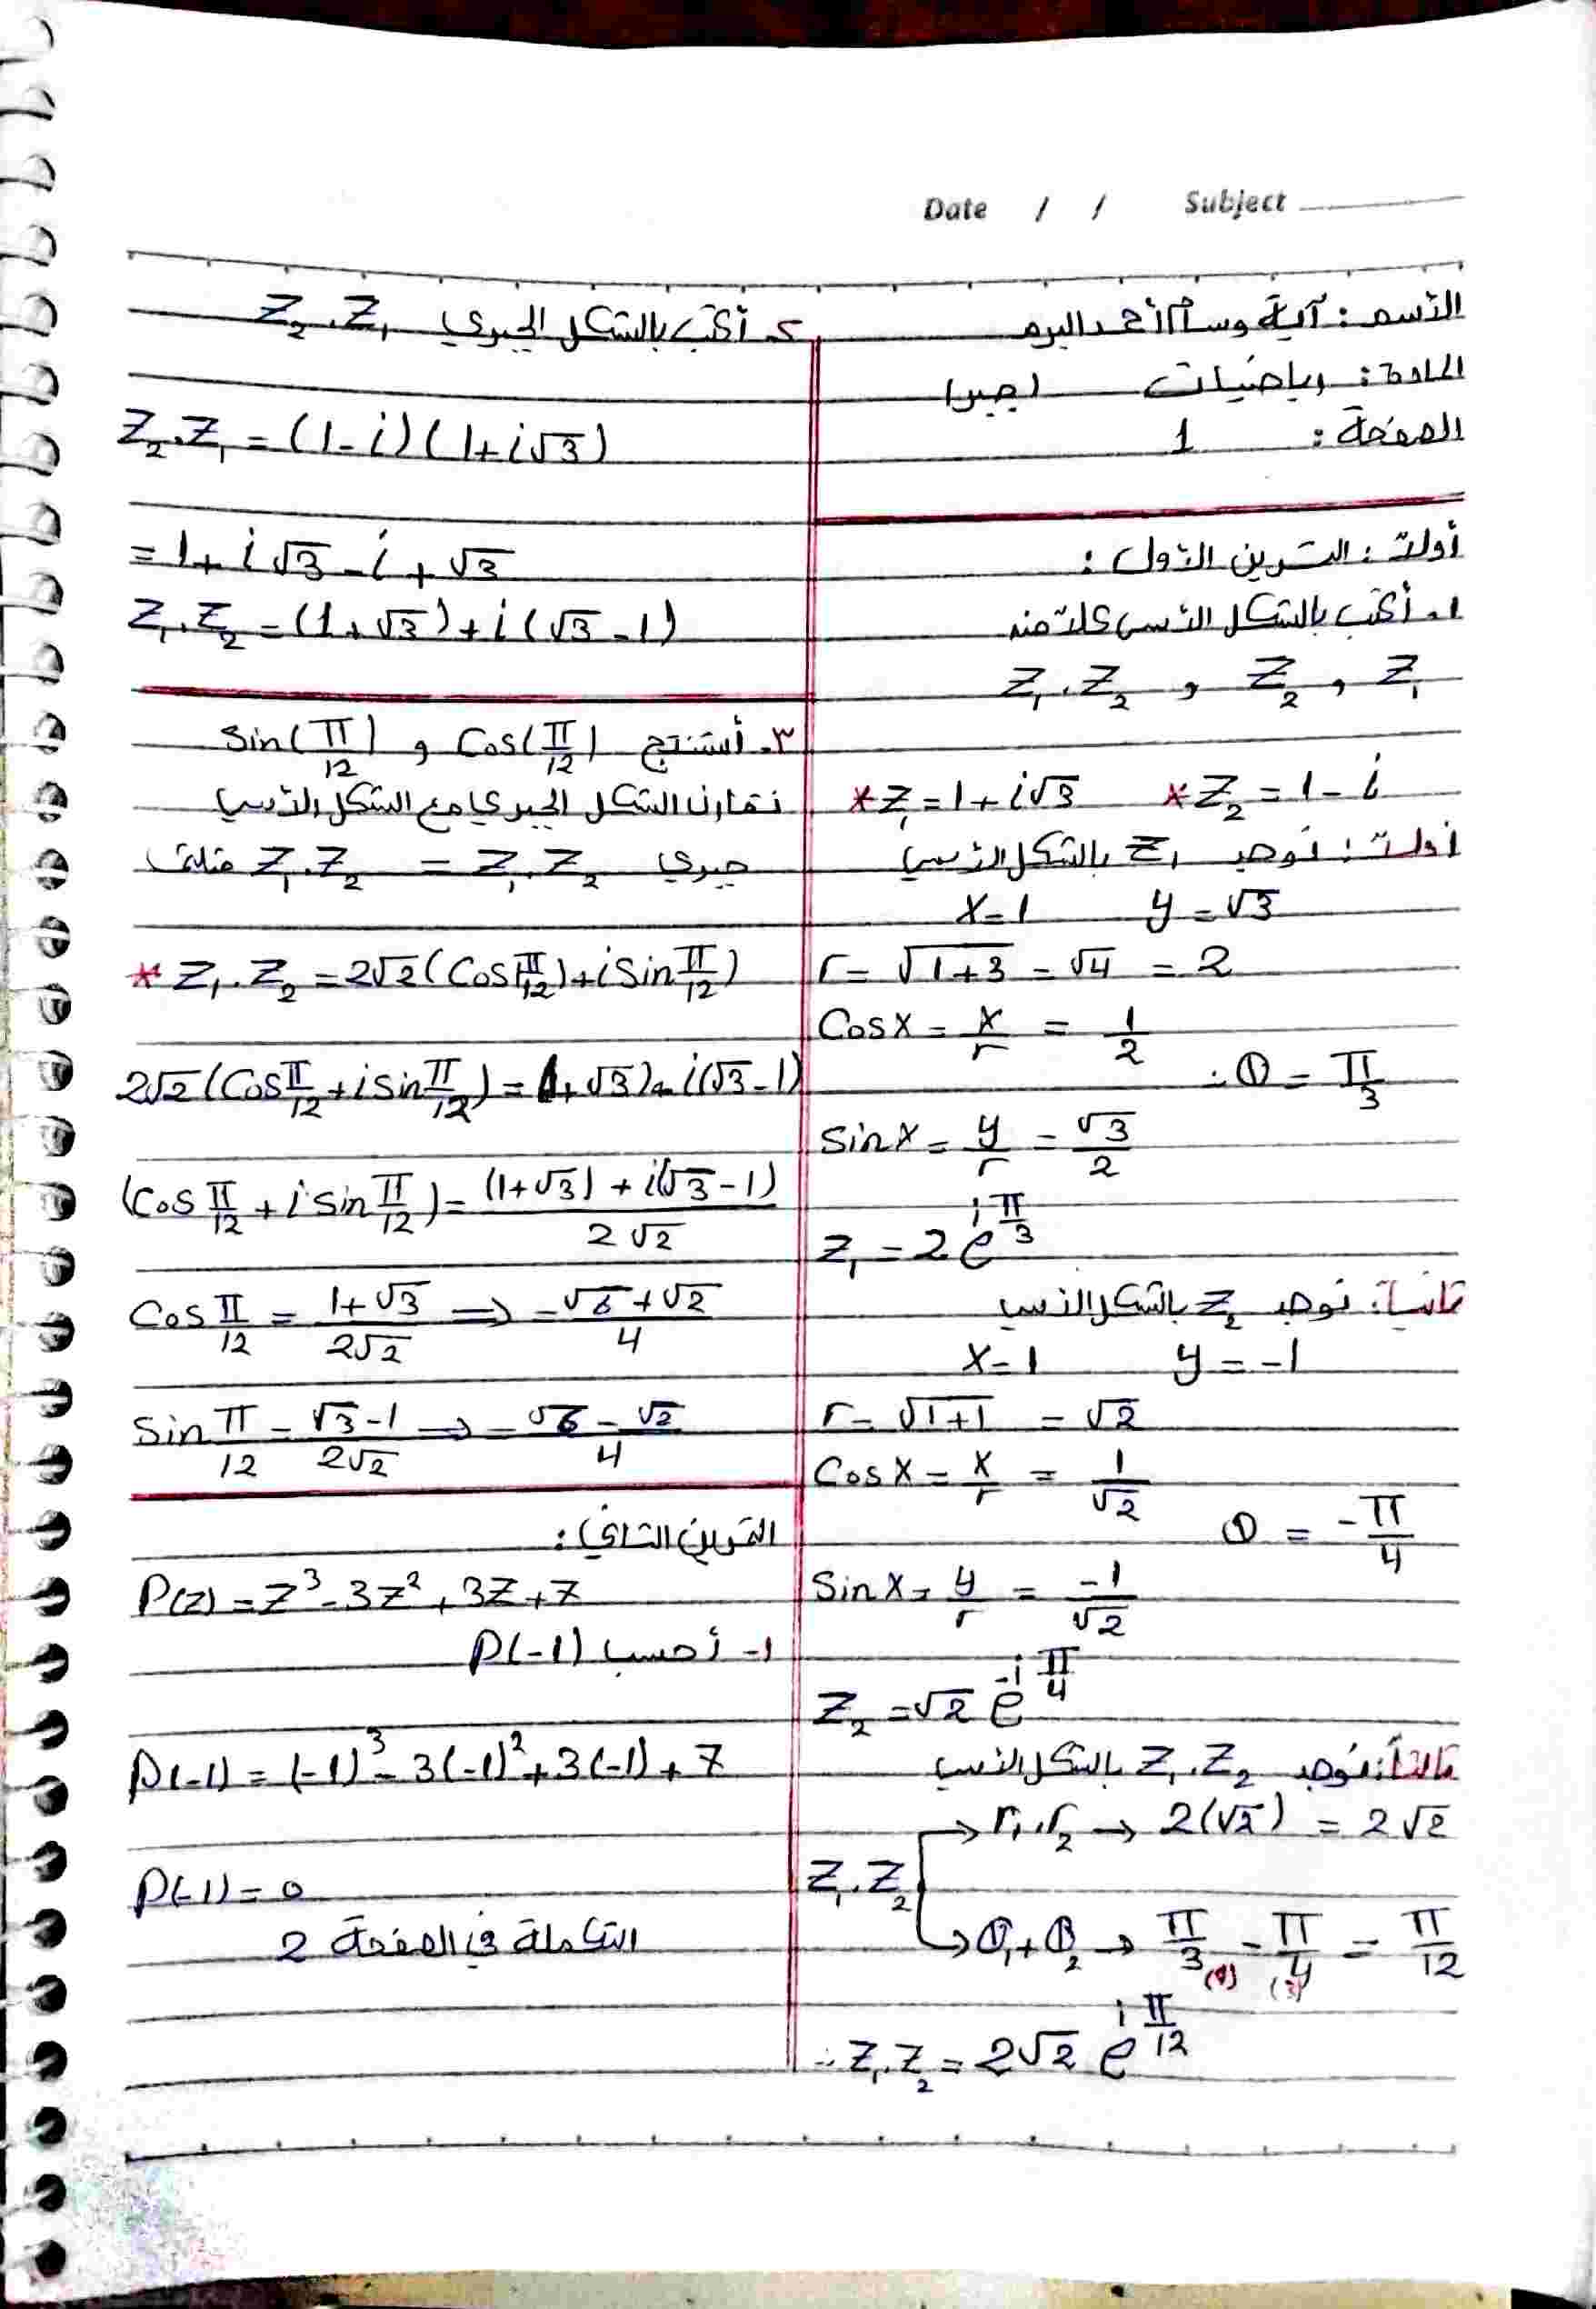 Date / / Subject
الأسم: آية وسام أحمد البرم
المادة: رياضيات (جبر)
الصفحة: 1
أولاً: التمرين الأول:
1. أكتب بالشكل الأسي كلاً من
Z₁ , Z₂ , Z₁.Z₂
*Z₁=1+i√3 *Z₂=1-i
أولاً: نوجد Z₁ بالشكل الأسي
x=1 y=√3
r=√(1+3)=√4=2
Cosx=x/r=1/2
∴θ=π/3
Sinx=y/r=√3/2
Z₁=2e^(iπ/3)
ثانياً: نوجد Z₂ بالشكل الأسي
x=1 y=-1
r=√(1+1)=√2
Cosx=x/r=1/√2
θ=-π/4
Sinx=y/r=-1/√2
Z₂=√2e^(-iπ/4)
ثالثاً: نوجد Z₁.Z₂ بالشكل الأسي
→r₁.r₂→2(√2)=2√2
Z₁.Z₂
→θ₁+θ₂→π/3-π/4=π/12
(4) (3)
∴Z₁.Z₂=2√2e^(iπ/12)
2. أكتب بالشكل الجبري Z₂.Z₁
Z₂.Z₁=(1-i)(1+i√3)
=1+i√3-i+√3
Z₁.Z₂=(1+√3)+i(√3-1)
٣. أستنتج Cos(π/12) و Sin(π/12)
نقارن الشكل الجبري مع الشكل الأسي
جبري Z₁.Z₂ = Z₁.Z₂
*Z₁.Z₂=2√2(Cos(π/12)+iSin π/12)
2√2(Cos π/12+isin π/12)=(1+√3)+i(√3-1)
(Cos π/12+isin π/12)=((1+√3)+i(√3-1))/2√2
Cos π/12=(1+√3)/2√2⇒=(√6+√2)/4
Sin π/12=(√3-1)/2√2→=(√6-√2)/4
التمرين الثاني:
P(z)=Z³-3Z²+3Z+7
1- أحسب P(-1)
P(-1)=(-1)³-3(-1)²+3(-1)+7
P(-1)=0
التكملة في الصفحة 2